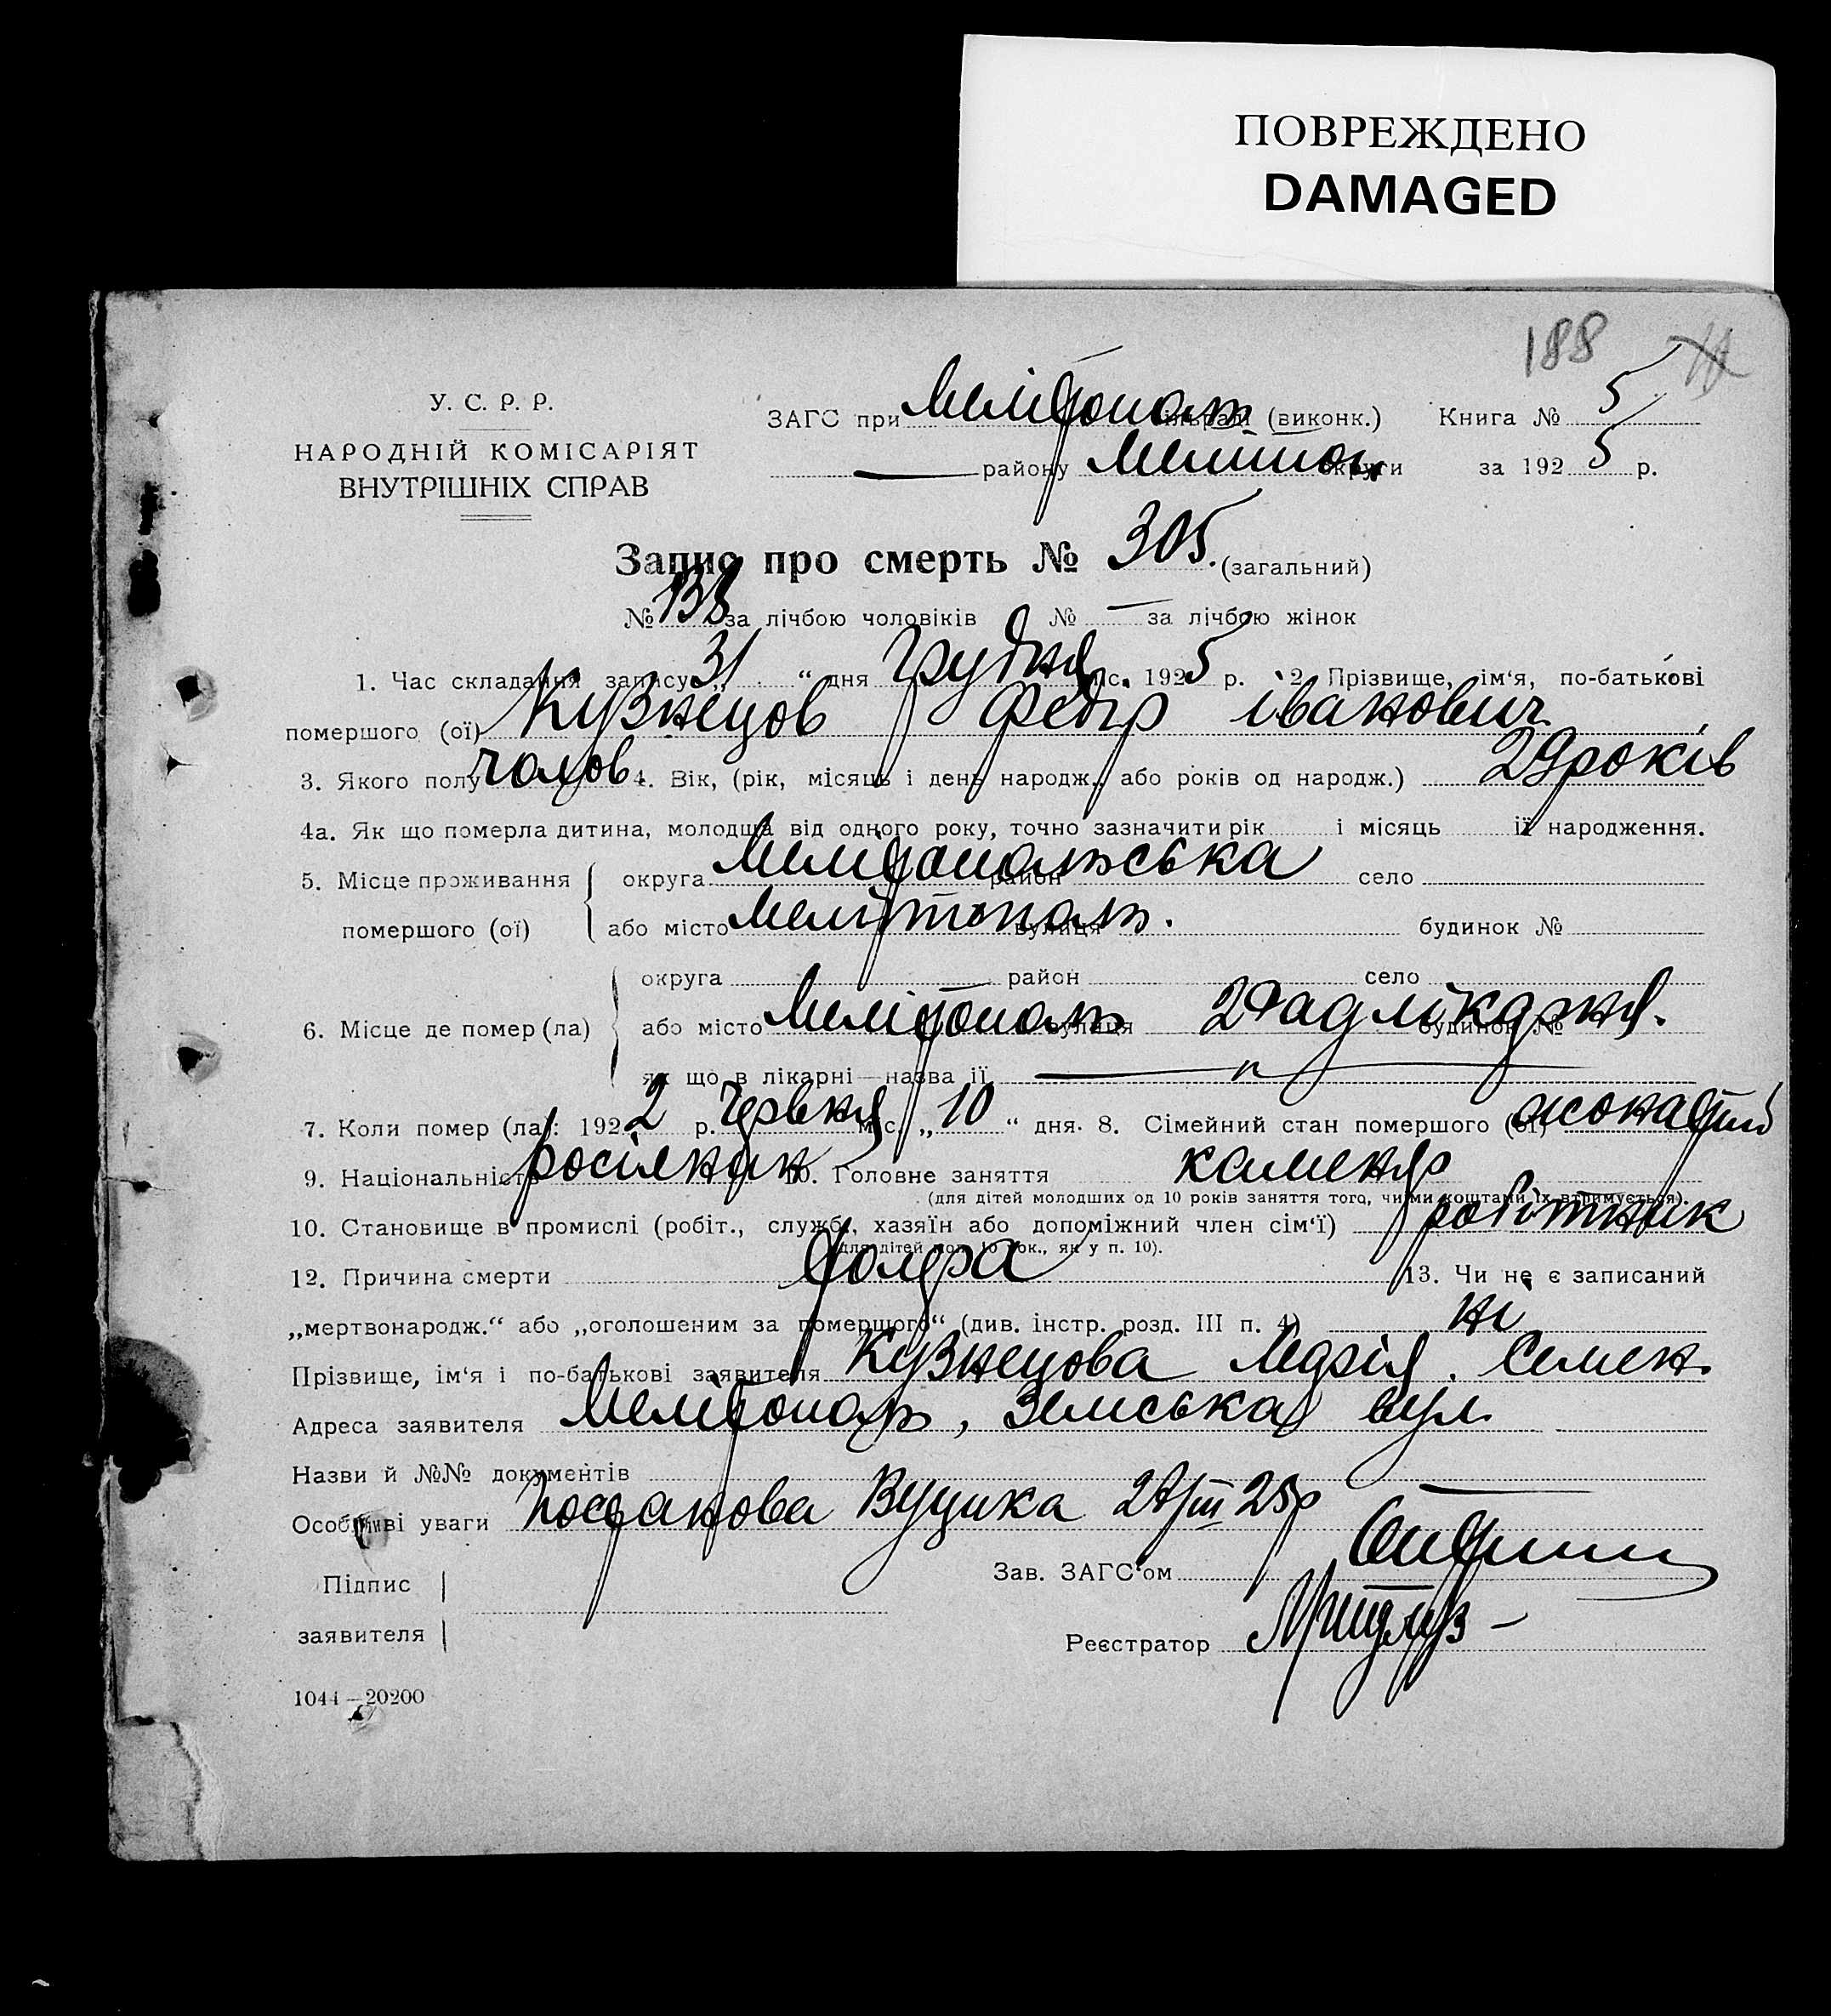 ПОВРЕЖДЕНО
DAMAGED
188
У. С. Р. Р.
НАРОДНІЙ КОМІСАРІЯТ
ВНУТРІШНІХ СПРАВ
ЗАГС при Мелітопол (виконк.) Книга № 5
— району Мелітоп округи за 1925 р.
Запис про смерть № 305. (загальний)
№ 138 за лічбою чоловіків № — за лічбою жінок
1. Час складання запису „31“ дня Грудня міс. 1925 р. 2. Прізвище, ім‘я, по-батькові
помершого (ої) Кузнецов Федір Іванович
3. Якого полу чолов. 4. Вік, (рік, місяць і день народж., або років од народж.) 29 років
4а. Як що померла дитина, молодша від одного року, точно зазначити рік і місяць її народження.
5. Місце проживання округа Мелітопольська район село
помершого (ої) або місто Мелітополь. вулиця будинок №
округа район село
6. Місце де помер (ла) або місто Мелітополь вулиця 2 лікарня. будинок №
як що в лікарні—назва її — „ —
7. Коли помер (ла): 1922 р. Червня міс. „10“ дня. 8. Сімейний стан помершого (ої) жонатий
9. Національність росіянин 10. Головне заняття каменяр
(для дітей молодших од 10 років заняття того, чиїми коштами їх втримується).
10. Становище в промислі (робіт., службі, хазяїн або допоміжний член сім‘ї) робітник
(для дітей мол. 10 рок., як у п. 10).
12. Причина смерти Холєра 13. Чи не є записаний
„мертвонародж.“ або „оголошеним за померщого“ (див. інстр. розд. III п. 4) ні
Прізвище, ім‘я і по-батькові заявителя Кузнецова Марія Семен.
Адреса заявителя Мелітополь, Земська вул.
Назви й №№ документів —
Особливі уваги Постанова Вуцика
Зав. ЗАГС‘ом
Підпис
заявителя
Реєстратор
1044—20200